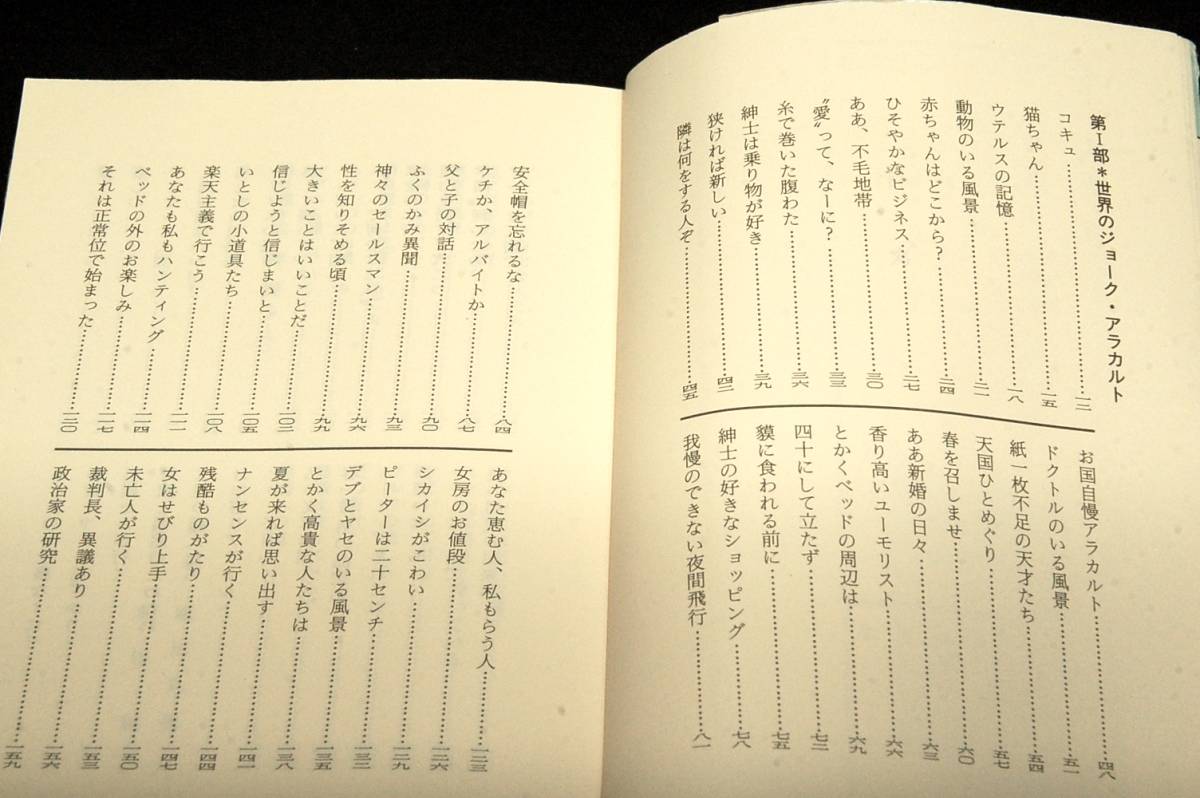 第Ⅰ部*世界のジョーク・アラカルト
コキュ……一二
猫ちゃん……一五
ウテルスの記憶……一八
動物のいる風景……二一
赤ちゃんはどこから?……二四
ひそやかなビジネス……二七
ああ、不毛地帯……三〇
“愛”って、なーに?……三三
糸で巻いた腹わた……三六
紳士は乗り物が好き……三九
狭ければ新しい……四二
隣は何をする人ぞ……四五
お国自慢アラカルト……四八
ドクトルのいる風景……五一
紙一枚不足の天才たち……五四
天国ひとめぐり……五七
春を召しませ……六〇
ああ新婚の日々……六三
香り高いユーモリスト……六六
とかくベッドの周辺は……六九
四十にして立たず……七二
貘に食われる前に……七五
紳士の好きなショッピング……七八
我慢のできない夜間飛行……八一
安全帽を忘れるな……八四
ケチか、アルバイトか……八七
父と子の対話……九〇
ふくのかみ異聞……九三
神々のセールスマン……九六
性を知りそめる頃……九九
大きいことはいいことだ……一〇二
信じようと信じまいと……一〇五
いとしの小道具たち……一〇八
楽天主義で行こう……一一一
あなたも私もハンティング……一一四
ベッドの外のお楽しみ……一一七
それは正常位で始まった……一二〇
あなた恵む人、私もらう人……一二三
女房のお値段……一二六
シカイシがこわい……一二九
ピーターは二十センチ……一三二
デブとヤセのいる風景……一三五
とかく高貴な人たちは……一三八
夏が来れば思い出す……一四一
ナンセンスが行く……一四四
残酷ものがたり……一四七
女はせびり上手……一五〇
未亡人が行く……一五三
裁判長、異議あり……一五六
政治家の研究……一五九